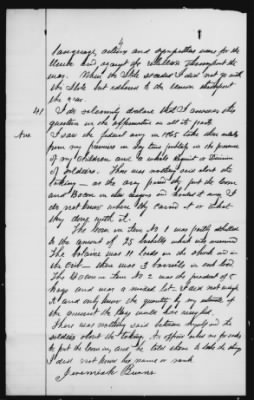 4
language, actions and sympathies were for the
Union and against the rebellion throughout the
war. When the State seceded I did not go with
the State but adhered to the Union throughout
the war.
41 I do solemnly declare that I answer this
question in the affirmative in all its parts.
Ans I saw the federal army in 1865 take the
from my premises in day time publicly in the presence
of my children and a whole Regiment or Division
of soldiers. There was nothing said about the
taking — as the army passed they put the Corn
and Bacon in the wagons and hauled it away. I do
not know where they carried it or what
they done with it.
The Corn in Item No 1 was partly shelled
to the amount of 25 bushels which was
The balance was 11 loads in the in
the Crib — there was 3 barrels in each load
The Bacon in Item No 2 was the product of 5
hogs and was a mixed lot. I did not weigh
it and only know the quantity by my estimate of
the amount the Hogs would have weighed.
There was nothing said between myself and the
soldiers about the taking. An officer
to put the Corn in, and he told them to take the
I did not know his name or rank
Jeremiah Burns